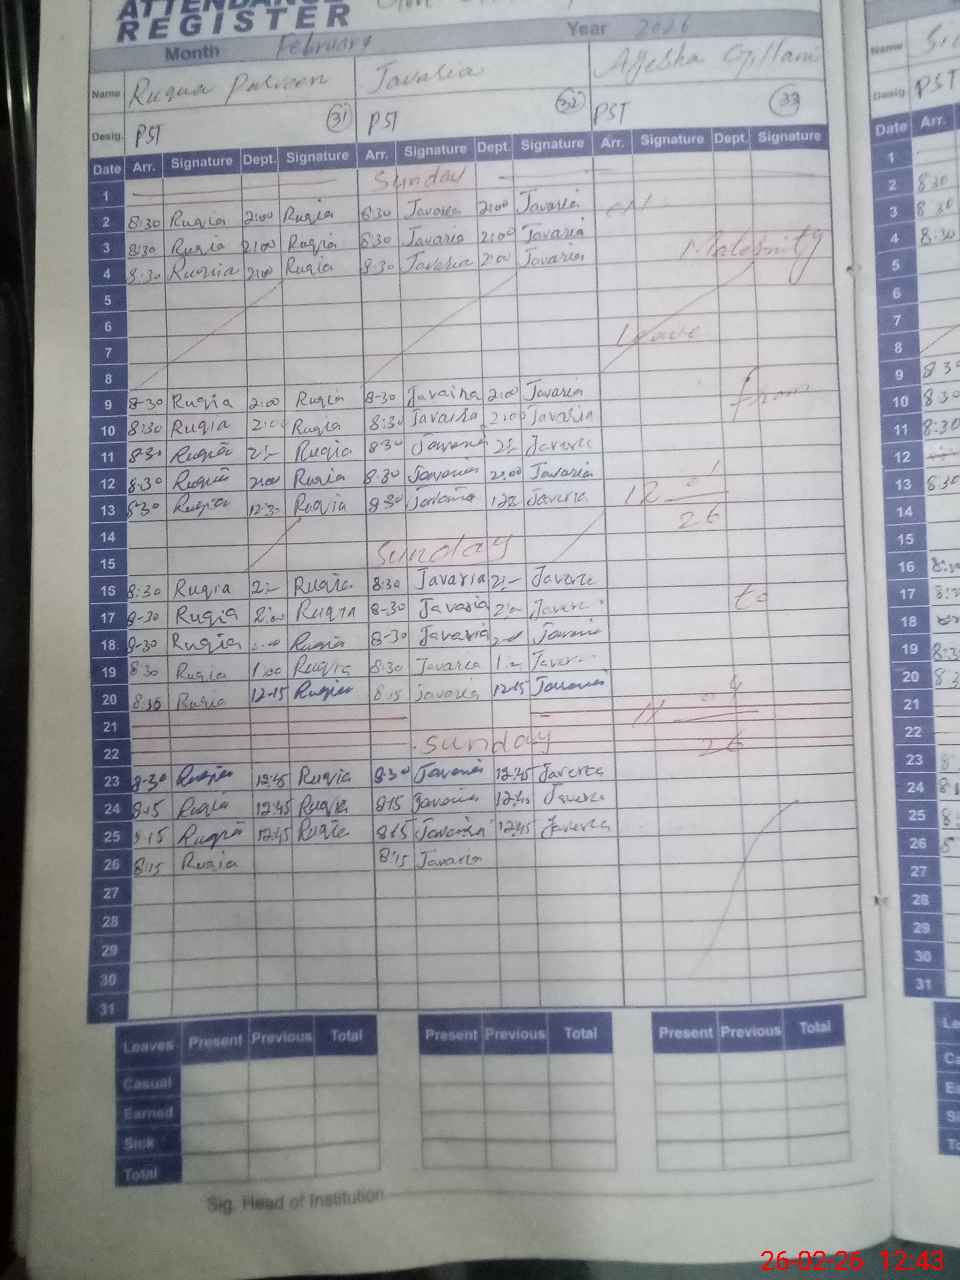 ATTENDANCE
REGISTER
Month February Year 2026
Name Ruqua Parveen Javaria Ayesha Gillani
Desig. PST 31 PST 32 PST 33
Date Arr. Signature Dept. Signature Arr. Signature Dept. Signature Arr. Signature Dept. Signature
1 Sunday
2 8:30 Ruqia 2:00 Ruqia 8:30 Javaria 2:00 Javaria on
3 8:30 Ruqia 2:00 Ruqia 8:30 Javaria 2:00 Javaria Maternity
4 8:30 Ruqia 2:00 Ruqia 8:30 Javaria 2:00 Javaria
5
6
7 Leave
8
9 8-30 Ruqia 2:00 Ruqia 8-30 Javaria 2:00 Javaria from
10 8:30 Ruqia 2:00 Ruqia 8:30 Javaria 2:00 Javaria
11 8-30 Ruqia 2:- Ruqia 8-30 Javaria 2:- Javeria
12 8-30 Ruqia 2:00 Ruqia 8.30 Javaria 2:00 Javaria
13 8-30 Ruqia 12:30 Ruqia 8-30 Javaria Javeria 12 1
14 26
15 Sunday
15 8:30 Ruqia 2:- Ruqia 8:30 Javaria 2:- Javeria
17 8-30 Ruqia 2:00 Ruqia 8-30 Javaria Javeria to
18 8-30 Ruqia Ruqia 8-30 Javaria Javaria
19 8:30 Ruqia 1:00 Ruqia 8:30 Javaria 1:- Javeria
20 8:30 Ruqia 12:15 Ruqia 8:15 Javaria 12:15 Javaria 4
21 11
22 Sunday 26
23 8-30 Ruqia 12:45 Ruqia 8:30 Javaria 12:45 Javeria
24 8:15 Ruqia 12:45 Ruqia 8:15 Javaria 12:45 Javeria
25 8:15 Ruqia 12:45 Ruqia 8:15 Javaria 12:45 Javeria
26 8:15 Ruqia 8:15 Javaria
27
28
29
30
31
Leaves Present Previous Total Present Previous Total Present Previous Total
Casual
Earned
Sick
Total
Sig. Head of Institution
Name
Desig. PST
Date Arr.
1
2 8:30
3 8:30
4 8:30
5
6
7
8
9 8:30
10 8:30
11 8:30
12
13 8:30
14
15
16 8:30
17
18
19 8:30
20
21
22
23
24
25
26
27
28
29
30
31
26-02-26 12:43